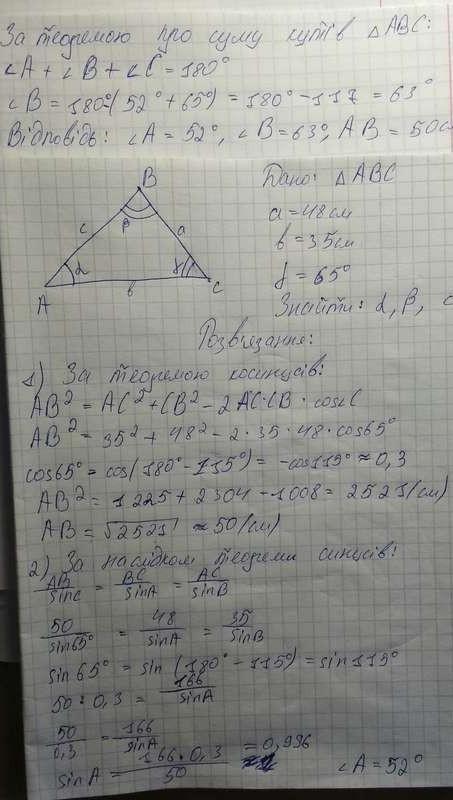 За теоремою про суму кутів △ABC:
∠A + ∠B + ∠C = 180°
∠B = 180°-(52° + 65°) = 180° - 117 = 63°
Відповідь: ∠A = 52°, ∠B = 63°, AB = 50см
B
c β a
α γ
A b C
Дано: △ABC
a = 48 см
b = 35 см
γ = 65°
Знайти: α, β, c
Розв'язання:
1) За теоремою косинусів:
AB² = AC² + CB² - 2AC·CB · cosC
AB² = 35² + 48² - 2·35·48·cos65°
cos65° = cos(180° - 115°) = -cos115° ≈ 0,3
AB² = 1225 + 2304 - 1008 = 2521 (см)
AB = √2521 ≈ 50 (см)
2) За наслідком теореми синусів:
AB/sinC = BC/sinA = AC/sinB
50/sin65° = 48/sinA = 35/sinB
sin65° = sin(180° - 115°) = sin115°
50 : 0,3 = 166/sinA
50/0,3 = 166/sinA
sinA = 166·0,3/50 = 0,996
∠A = 52°